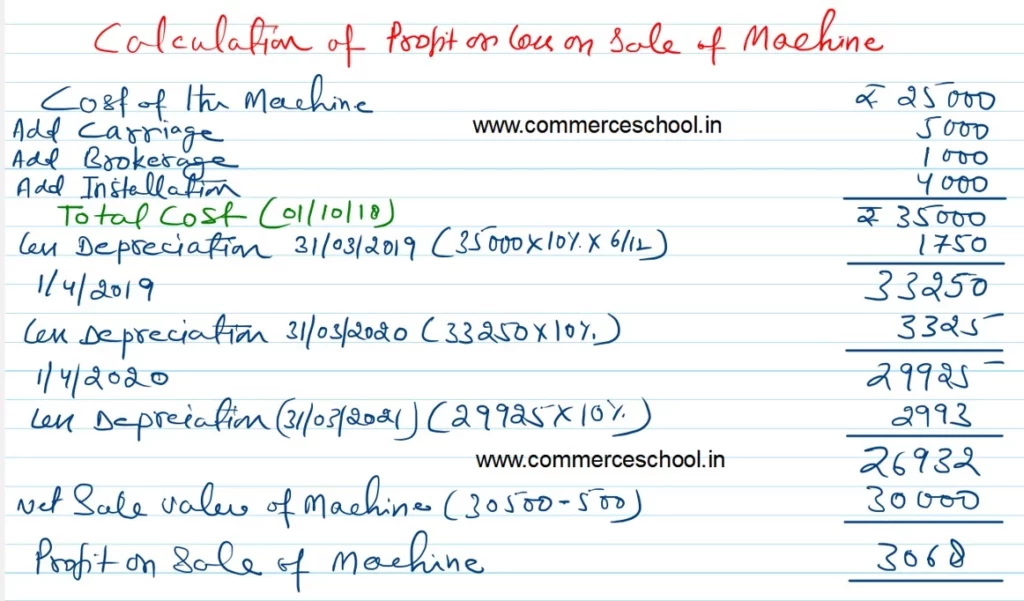 Calculation of Profit or Loss on Sale of Machine
Cost of the Machine ₹ 25000
Add Carriage 5000
www.commerceschool.in
Add Brokerage 1000
Add Installation 4000
Total Cost (01/10/18) ₹ 35000
Less Depreciation 31/03/2019 (35000×10%×6/12) 1750
1/4/2019 33250
Less Depreciation 31/03/2020 (33250×10%) 3325
1/4/2020 29925
Less Depreciation (31/03/2021) (29925×10%) 2993
www.commerceschool.in 26932
Net Sale value of Machine (30500-500) 30000
Profit on Sale of Machine 3068